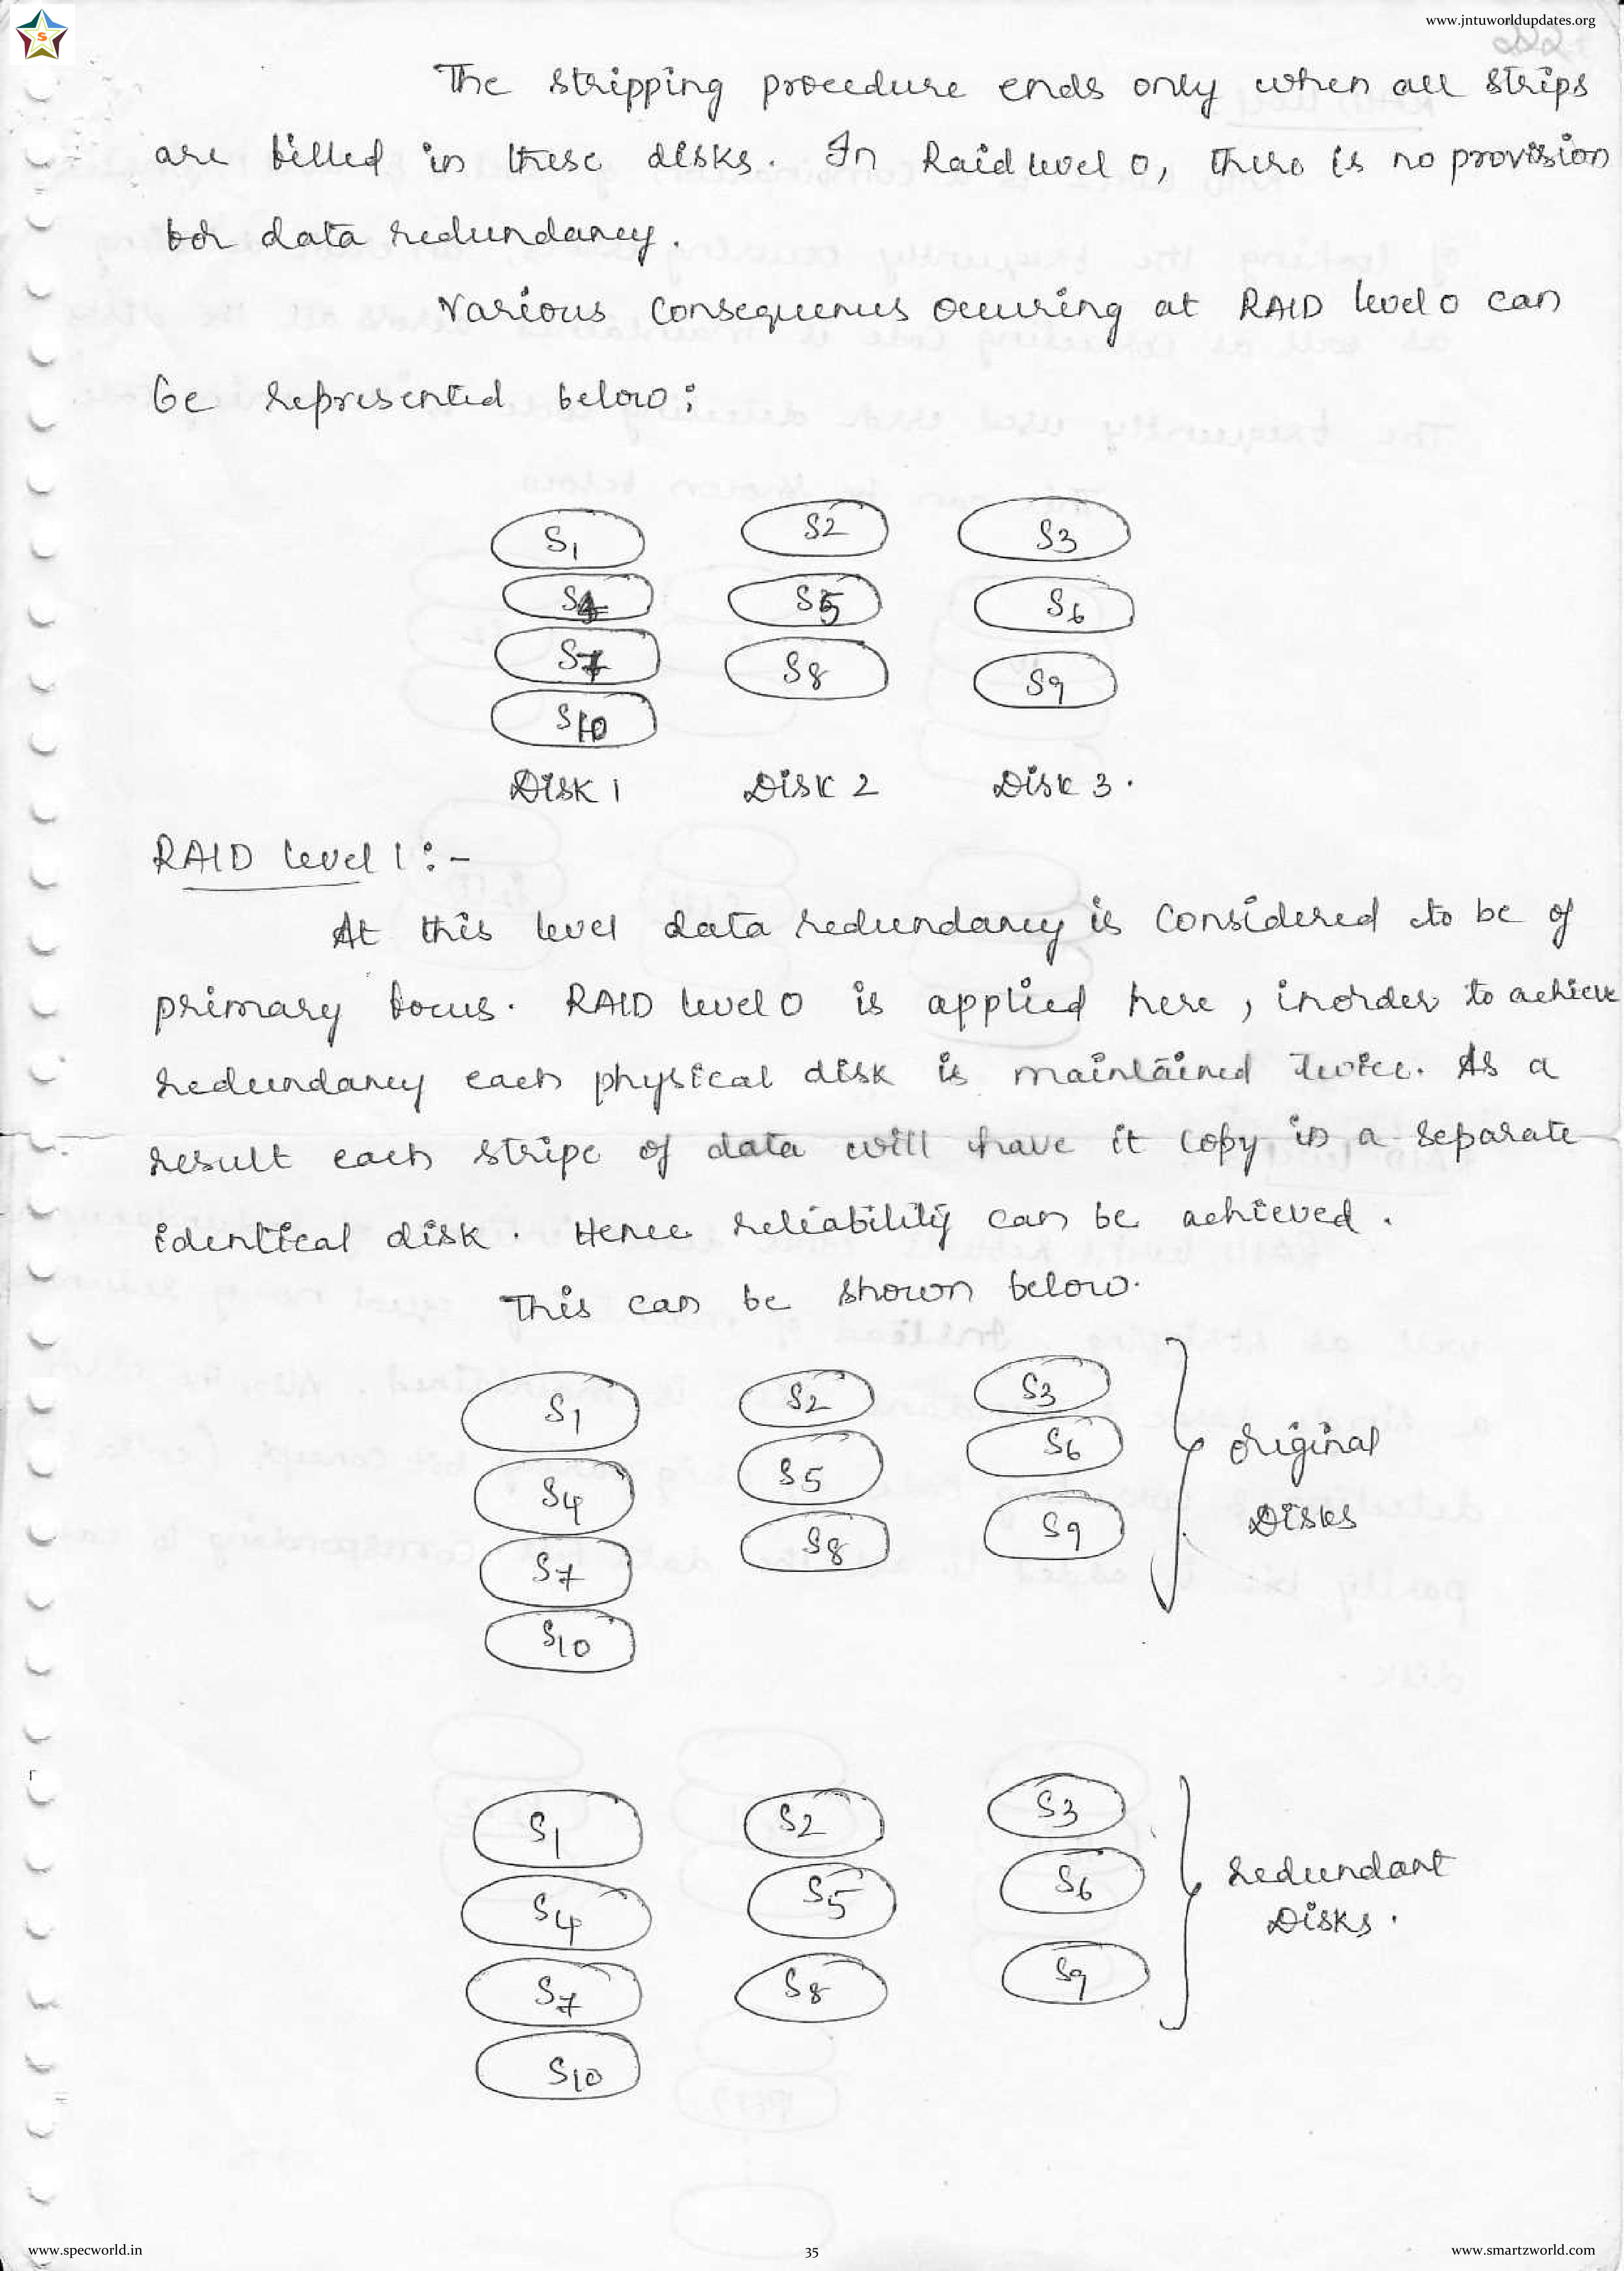 www.jntuworldupdates.org
S
The stripping procedure ends only when all strips
are filled in these disks. In Raid level 0, there is no provision
for data redundancy.
Various Consequences occuring at RAID level 0 can
be represented below:
S1 S2 S3
S4 S5 S6
S7 S8 S9
S10
Disk 1 Disk 2 Disk 3.
RAID level 1:-
At this level data redundancy is Considered to be of
primary focus. RAID level 0 is applied here, inorder to achieve
redundancy each physical disk is maintained twice. As a
result each stripe of data will have it copy in a separate
identical disk. Hence reliability can be achieved.
This can be shown below.
S1 S2 S3
S4 S5 S6
S7 S8 S9
S10
Original
Disks
S1 S2 S3
S4 S5 S6
S7 S8 S9
S10
redundant
Disks.
www.specworld.in 35 www.smartzworld.com